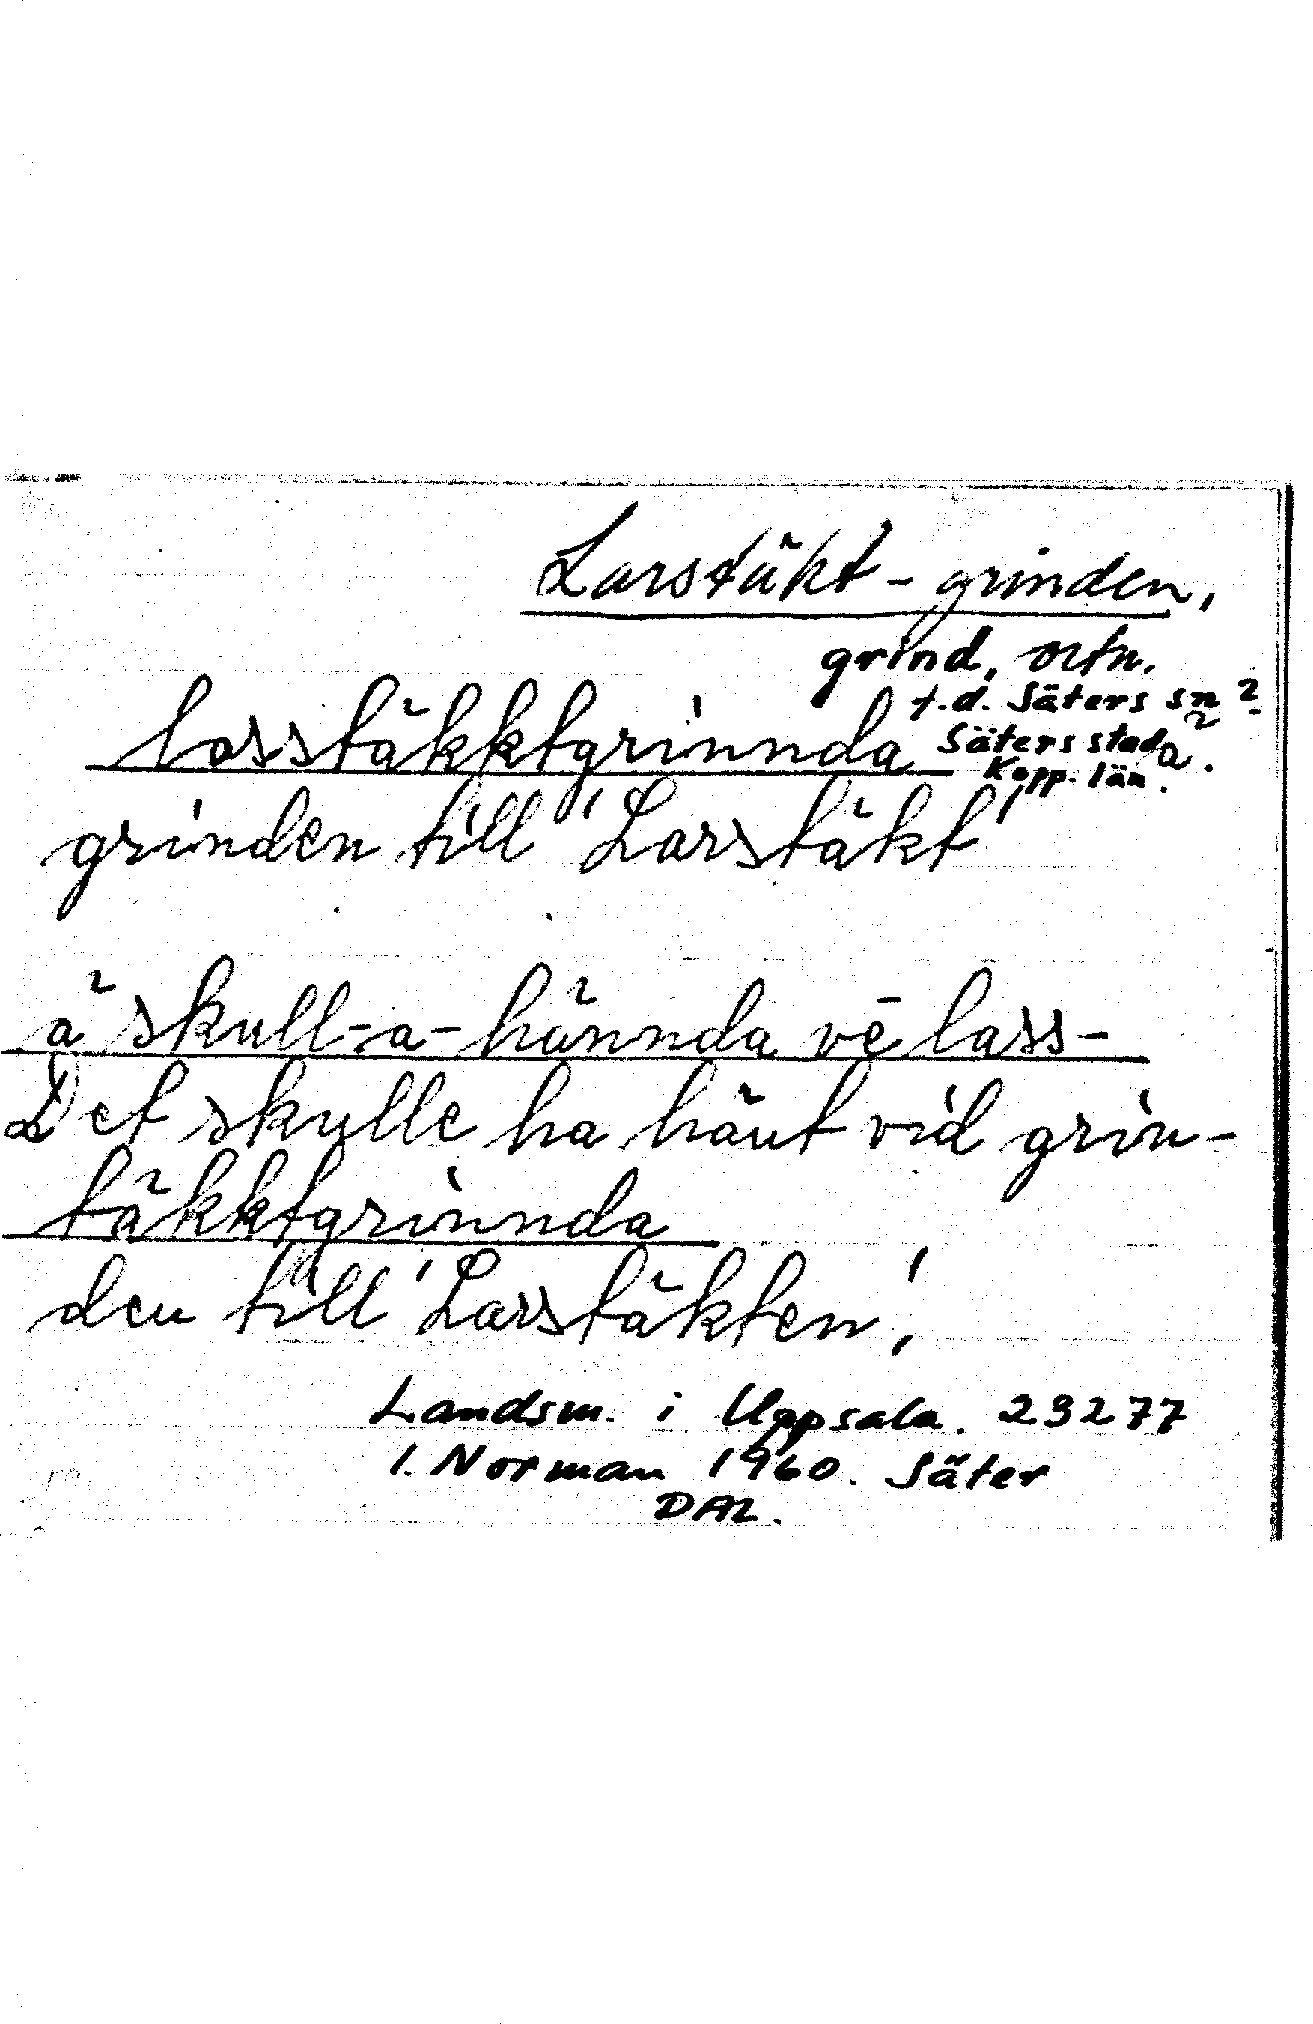 Larstäkt-grinden,
grind, ortn.
t.d. Säters sn
Säters stad
Kopp. län.
lasstäkktgrinnda ä.
grinden till 'Larstäkt'
ä skull-a-hännda vē lass-
Det skulle ha hänt vid grin-
täkktgrinnda
den till 'Larstäkten'.
Landsm. i Uppsala. 23277
I. Norman 1960. Säter
DAL.